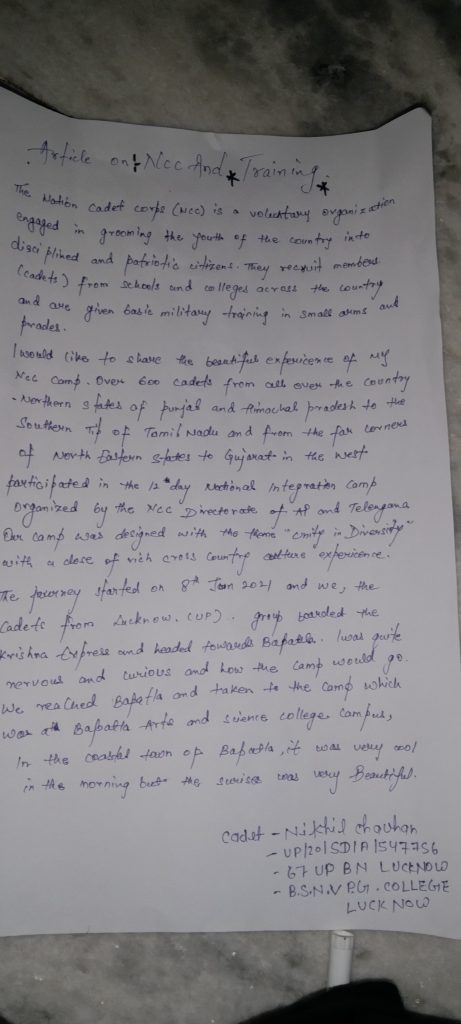 Article on Ncc And Training
The Nation Cadet corps (NCC) is a voluntary organization
engaged in grooming the youth of the country into
disciplined and patriotic citizens. They recruit members
(cadets) from schools and colleges across the country
and are given basic military training in small arms and
prades.
I would like to share the beautiful expericence of my
Ncc Camp. Over 600 cadets from all over the country
- Northern states of punjab and Himachal pradesh to the
Southern Tip of Tamil Nadu and from the far corners
of North Eastern states to Gujarat in the west
participated in the 12 day National Integration Camp
Organized by the NCC Directorate of AP and Telengana
Our camp was designed with the theme "Unity in Diversity"
with a dose of rich cross country culture experience.
The journey started on 8th Jan 2021 and we, the
Cadets from Lucknow. (UP). group boarded the
Krishna Express and headed towards Bapatla. I was quite
nervous and curious and how the camp would go.
We reached Bapatla and taken to the camp which
was at Bapatla Arts and science college campus,
In the coastal town of Bapatla, it was very cool
in the morning but the sunrise was very Beautiful.
Cadet - Nikhil chauhan
- UP/20/SD/A/547756
- 67 UP BN LUCKNOW
- B.S.N.V P.G. COLLEGE
LUCKNOW